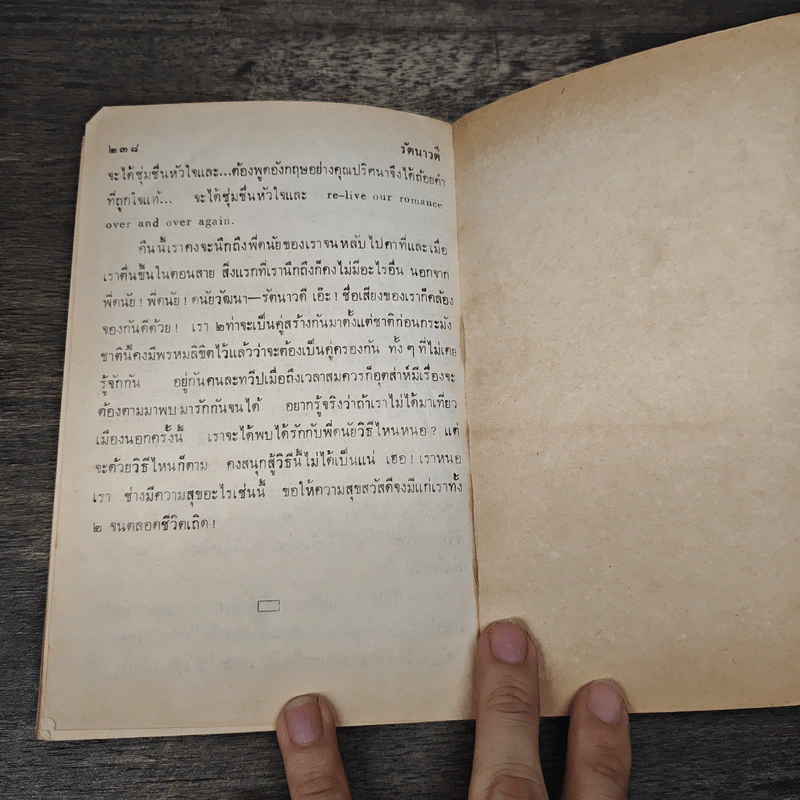 ๒๓๘ รัตนาวดี
จะได้ชุ่มชื่นหัวใจและ...ต้องพูดอังกฤษอย่างคุณปริศนาจึงได้ถ้อยคำ
ที่ถูกใจแท้... จะได้ชุ่มชื่นหัวใจและ re-live our romance
over and over again.
คืนนี้เราคงจะนึกถึงพี่ดนัยของเราจนหลับไปคาที่และเมื่อ
เราตื่นขึ้นในตอนสาย สิ่งแรกที่เรานึกถึงก็คงไม่มีอะไรอื่น นอกจาก
พี่ดนัย! พี่ดนัย! ดนัยวัฒนา—รัตนาวดี เอ๊ะ! ชื่อเสียงของเราก็คล้อง
จองกันดีด้วย! เรา ๒ ท่าจะเป็นคู่สร้างกันมาตั้งแต่ชาติก่อนกระมัง
ชาตินี้คงมีพรหมลิขิตไว้แล้วว่าจะต้องเป็นคู่ครองกัน ทั้ง ๆ ที่ไม่เคย
รู้จักกัน อยู่กันคนละทวีปเมื่อถึงเวลาสมควรก็อุตส่าห์มีเรื่องจะ
ต้องตามมาพบ มารักกันจนได้ อยากรู้จริงว่าถ้าเราไม่ได้มาเที่ยว
เมืองนอกครั้งนี้ เราจะได้พบได้รักกับพี่ดนัยวิธีไหนหนอ? แต่
จะด้วยวิธีไหนก็ตาม คงสนุกสู้วิธีนี้ไม่ได้เป็นแน่ เฮอ! เราหนอ
เรา ช่างมีความสุขอะไรเช่นนี้ ขอให้ความสุขสวัสดีจงมีแก่เราทั้ง
๒ จนตลอดชีวิตเถิด!